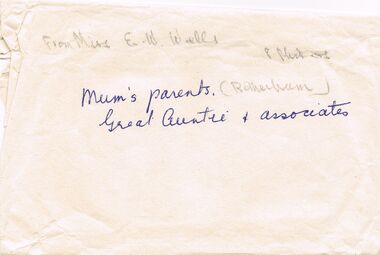 From Miss E. W. Wells
Mum's parents. (Rotherham)
Great Auntie & associates